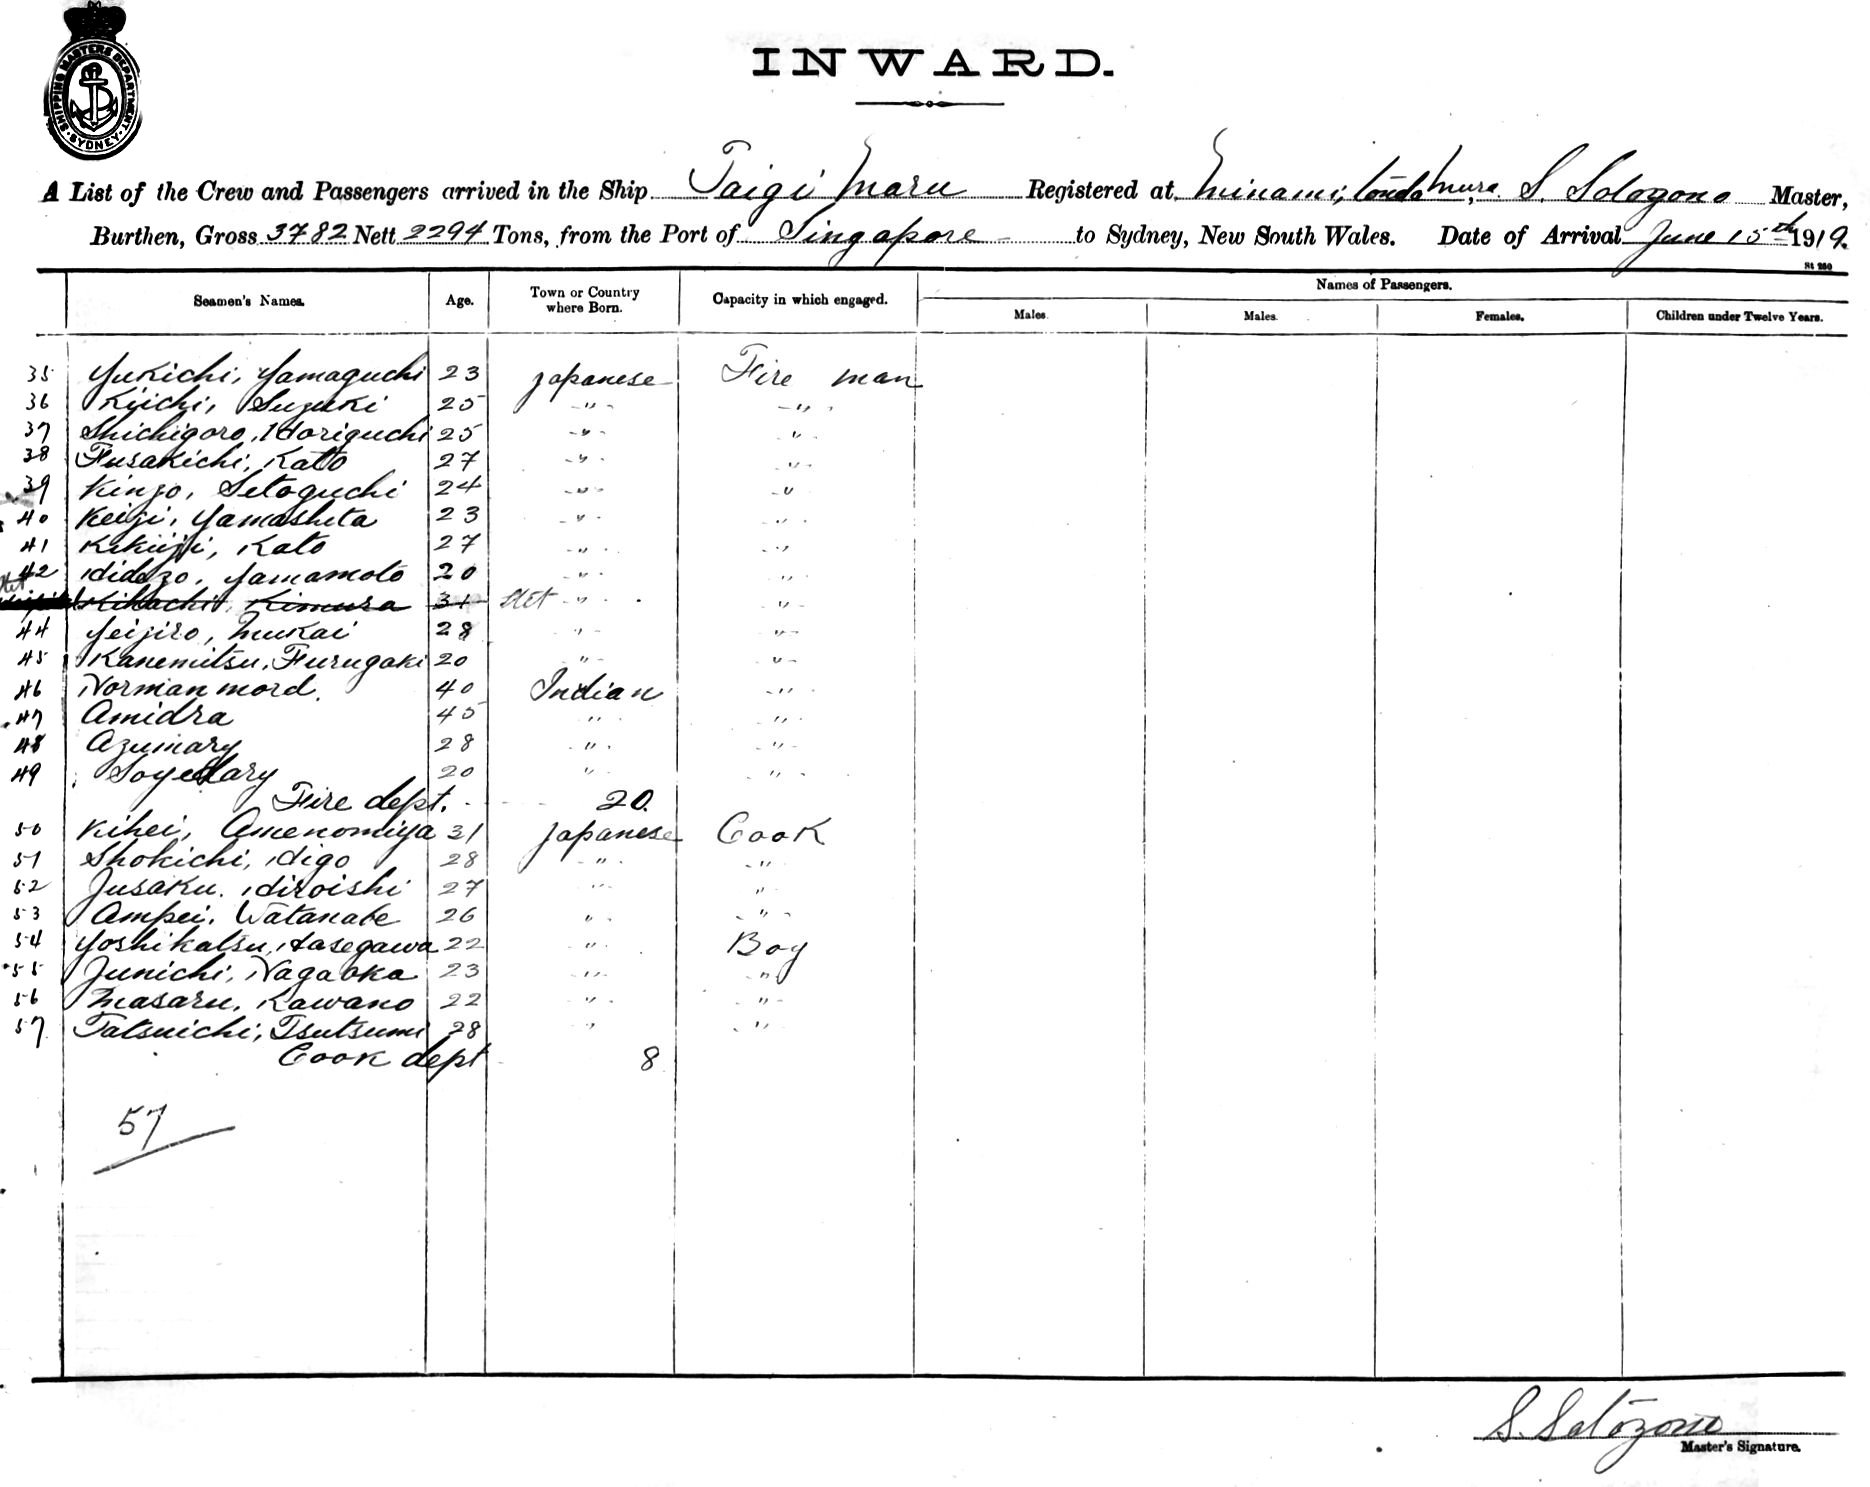 SHIPPING MASTERS DEPARTMENT · SYDNEY ·
INWARD.
A List of the Crew and Passengers arrived in the Ship Taigi Maru Registered at Minami, Tonda Mura. S. Sotozono Master,
Burthen, Gross 3782 Nett 2294 Tons, from the Port of Singapore to Sydney, New South Wales. Date of Arrival June 15th 1919.
St 260
Seamen's Names. Age. Town or Country where Born. Capacity in which engaged. Names of Passengers.
Males. Males. Females. Children under Twelve Years.
35 Yukichi, Yamaguchi 23 Japanese Fire man
36 Kiichi, Suzuki 25 " "
37 Shichigoro, Horiguchi 25 " "
38 Fusakichi, Kato 27 " "
39 Kinzo, Setoguchi 24 " "
40 Keiji, Yamashita 23 " "
41 Kikuji, Kato 27 " "
42 Hidezo, Yamamoto 20 " "
Kihachi, Kimura 31 " "
44 Yeijiro, Mukai 28 " "
45 Kanemitsu, Furugaki 20 " "
46 Norman mord. 40 Indian "
47 Amidra 45 " "
48 Azumary 28 " "
49 Soyedary 20 " "
Fire dept. 20.
50 Kihei, Amenomiya 31 Japanese Cook
51 Shokichi, Higo 28 " "
52 Jusaku. Hiroishi 27 " "
53 Ampei, Watanabe 26 " "
54 Yoshikatsu, Hasegawa 22 " Boy
55 Junichi, Nagaoka 23 " "
56 Masaru, Kawano 22 " "
57 Tatsuichi, Tsutsumi 28 " "
Cook dept 8
57
S. Sotozono
Master's Signature.